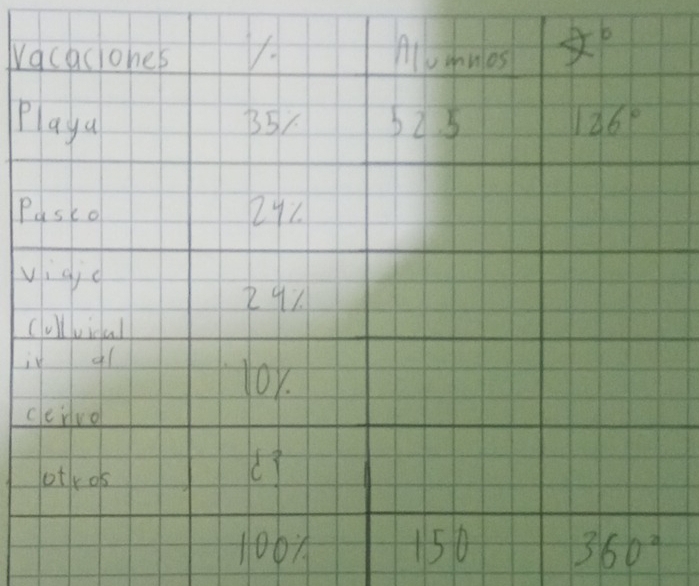 Vacaciones % Alumnos ∢°
Playa 35% 52.5 126°
Paseo 24%
viaje
24%
Cultural
ir al
10%
cerro
otros ¿?
100% 150 360°